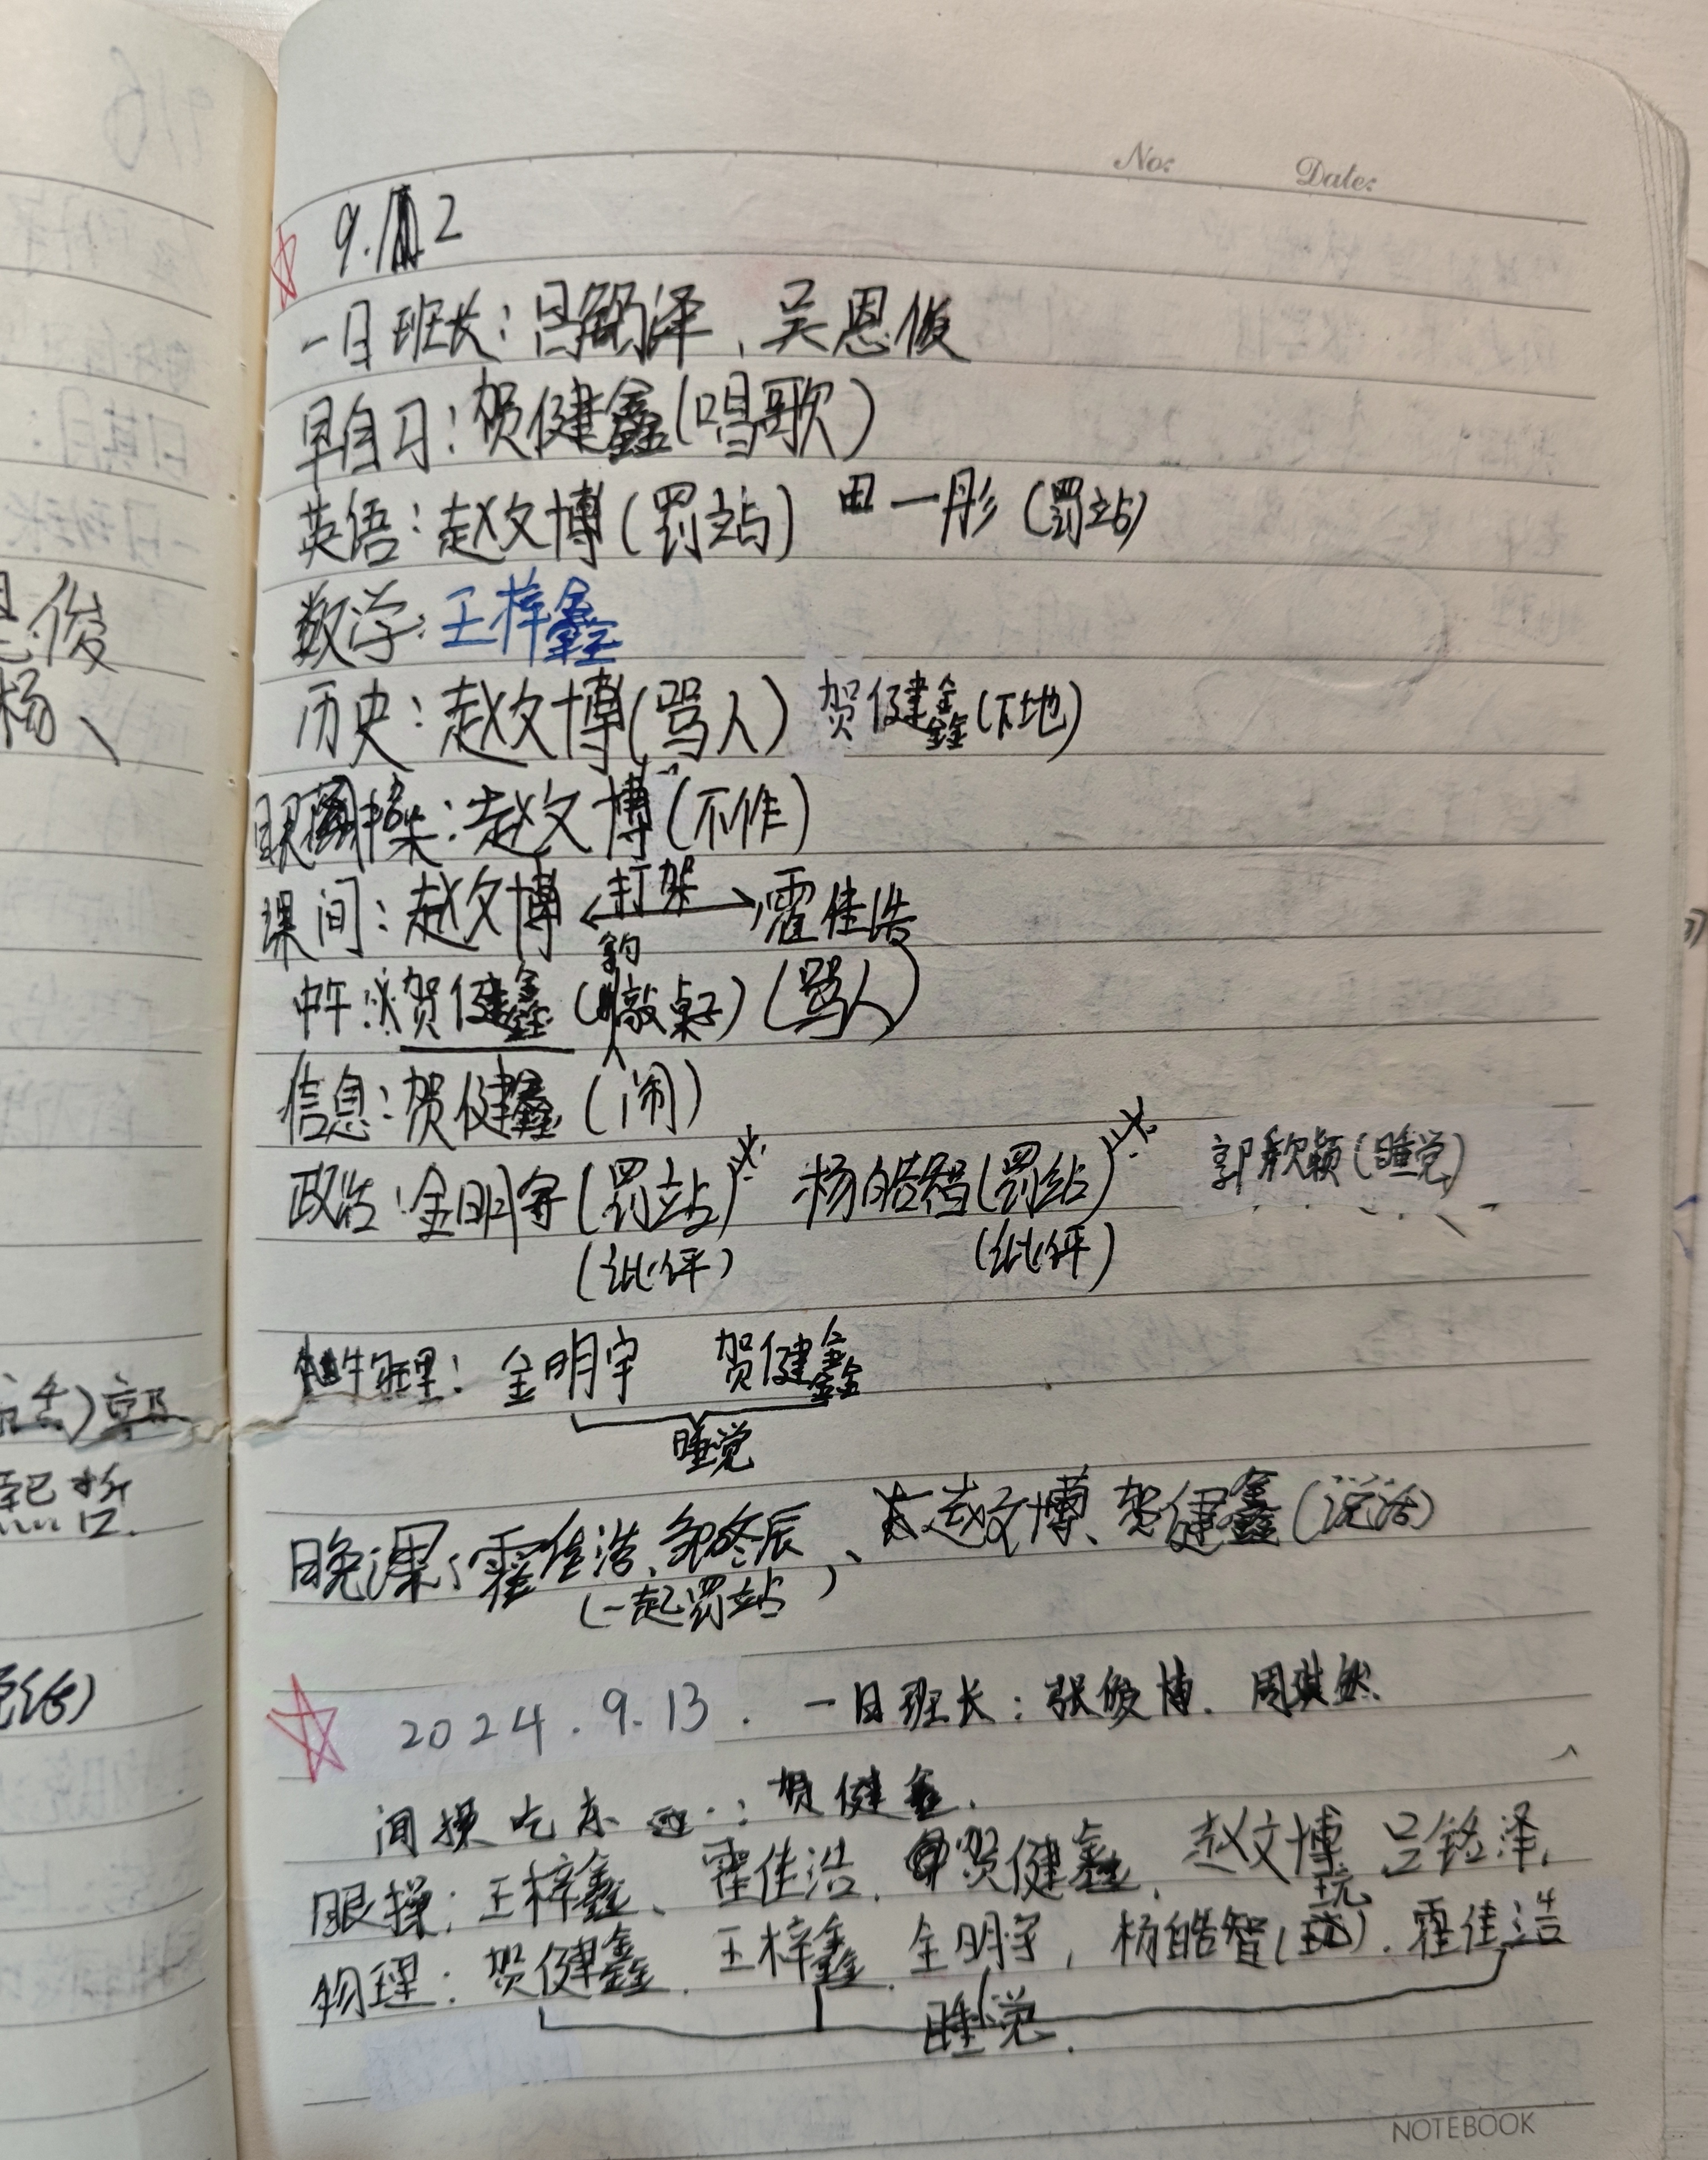 No:
Date:
9.12
一日班长：吕铭泽、吴恩俊
早自习：贺健鑫(唱歌)
英语：赵文博(罚站) 田一彤(罚站)
数学：王梓鑫
历史：赵文博(骂人) 贺健鑫(下地)
眼操：赵文博(不作)
课间：赵文博 打架 霍佳浩
中午：贺健鑫(敲桌子)(骂人)
信息：贺健鑫(闹)
政治：金明宇(罚站) 杨皓智(罚站) 郭歆颖(睡觉)
(批评) (批评)
物理：金明宇 贺健鑫
睡觉
晚课：霍佳浩、邹冬辰、赵文博、贺健鑫(说话)
(一起罚站)
2024.9.13. 一日班长：张俊博. 周琪然.
间操吃东西：贺健鑫.
眼操：王梓鑫、霍佳浩. 贺健鑫、赵文博 吕铭泽.
物理：贺健鑫. 王梓鑫. 金明宇，杨皓智(玩). 霍佳浩
睡觉.
NOTEBOOK